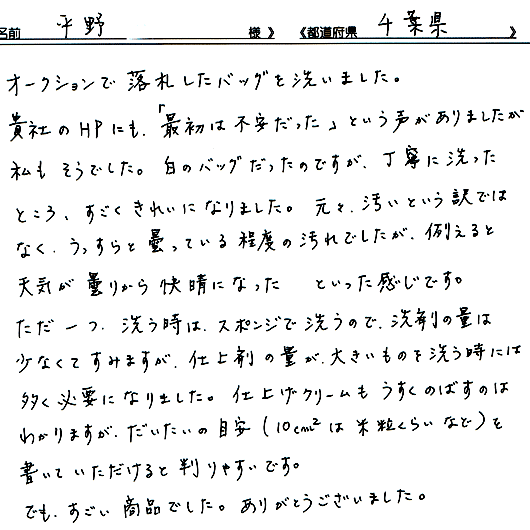 名前 平野 様 》 《都道府県 千葉県 》
オークションで落札したバッグを洗いました。
貴社のHPにも、「最初は不安だった」という声がありましたが
私もそうでした。白のバッグだったのですが、丁寧に洗った
ところ、すごくきれいになりました。元々、汚いという訳では
なく、うっすらと曇っている程度の汚れでしたが、例えると
天気が曇りから快晴になった といった感じです。
ただ一つ、洗う時は、スポンジで洗うので、洗剤の量は
少なくてすみますが、仕上剤の量が、大きいものを洗う時には
多く必要になりました。仕上げクリームもうすくのばすのは
わかりますが、だいたいの目安(10cm²は米粒くらいなど)を
書いていただけると判りやすいです。
でも、すごい商品でした。ありがとうございました。